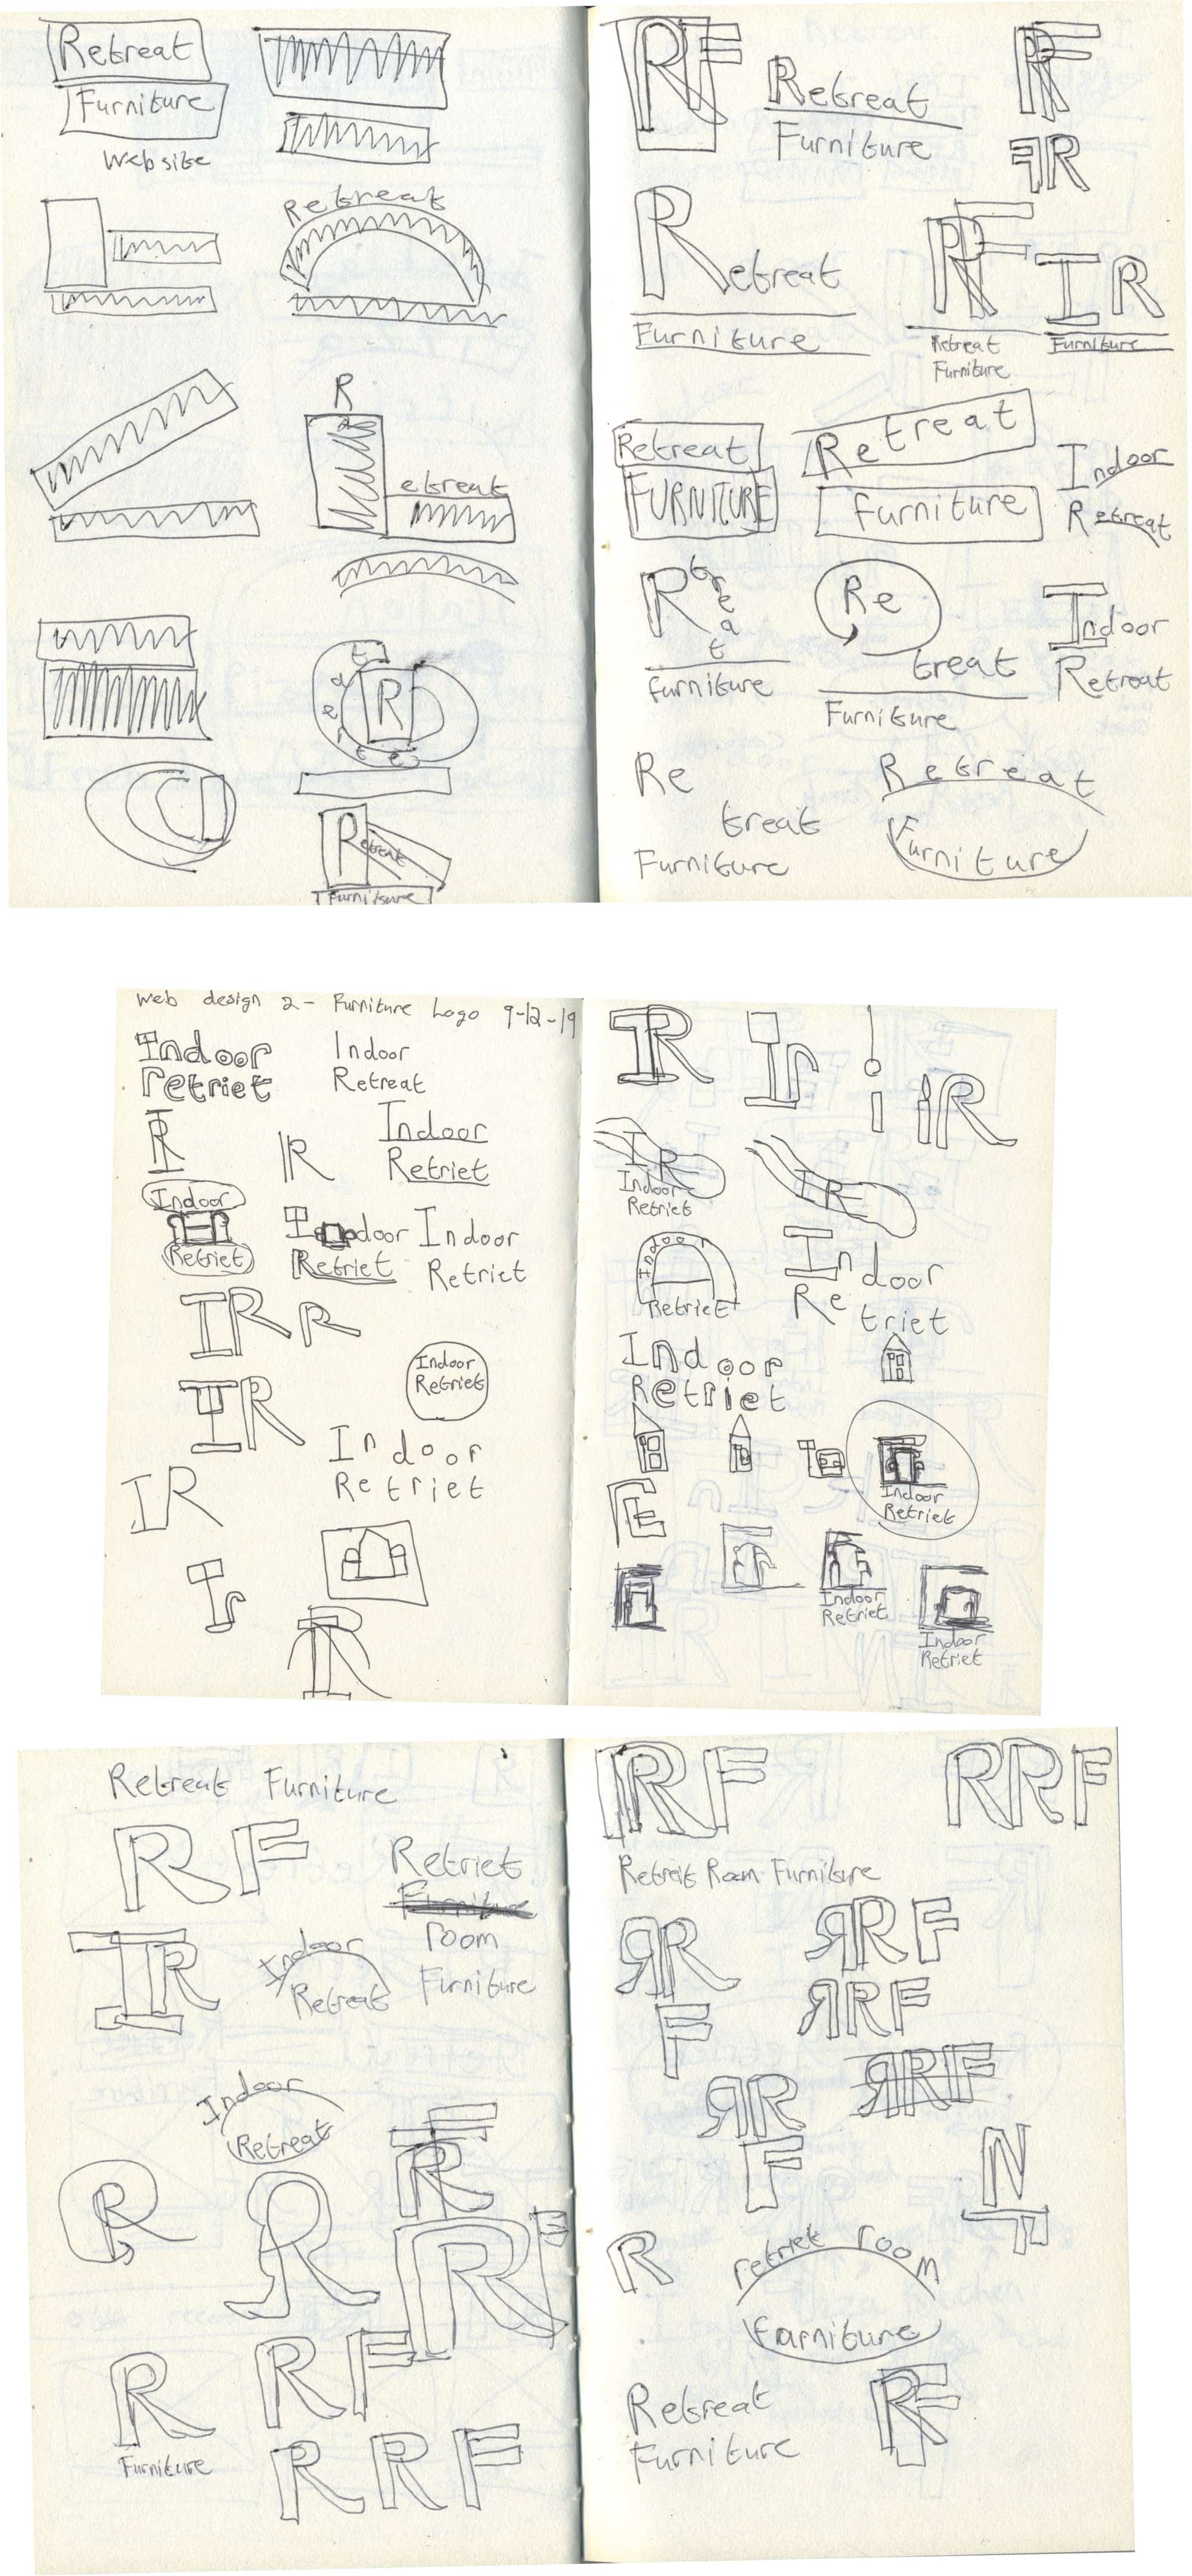 Retreat
Furniture
Website
Retreat
R
etreat
R
R
etreat
Furniture
RF
Retreat
Furniture
RF
FR
Retreat
Furniture
RF
Retreat
Furniture
IR
Furniture
Retreat
FURNITURE
Retreat
Furniture
Indoor
Retreat
Retreat
furniture
Re
treat
Furniture
Indoor
Retreat
Re
treat
Furniture
Retreat
Furniture
Web design 2 - Furniture Logo 9-12-19
Indoor
retriet
Indoor
Retreat
IR
IR
Indoor
Retriet
Indoor
Retriet
Indoor
Retriet
Indoor
Retriet
IR
R
Indoor
Retriet
IR
Indoor
Retriet
IR
Ir
IR
IR
Ir
i
iR
IR
Indoor
Retriet
IR
Indoor
Retriet
Indoor
Retriet
Indoor
Retriet
Indoor
Retriet
Indoor
Retriet
Indoor
Retriet
Retreat Furniture
RF
Retriet
Furniture
room
Furniture
IR
Indoor
Retreat
Indoor
Retreat
R
R
RF
R
Furniture
RF
RRF
RF
RRF
Retreit Room Furniture
RR
F
RRF
RRF
RR
F
RRF
N
F
R
retriet room
Farniture
Retreat
Furniture
RF